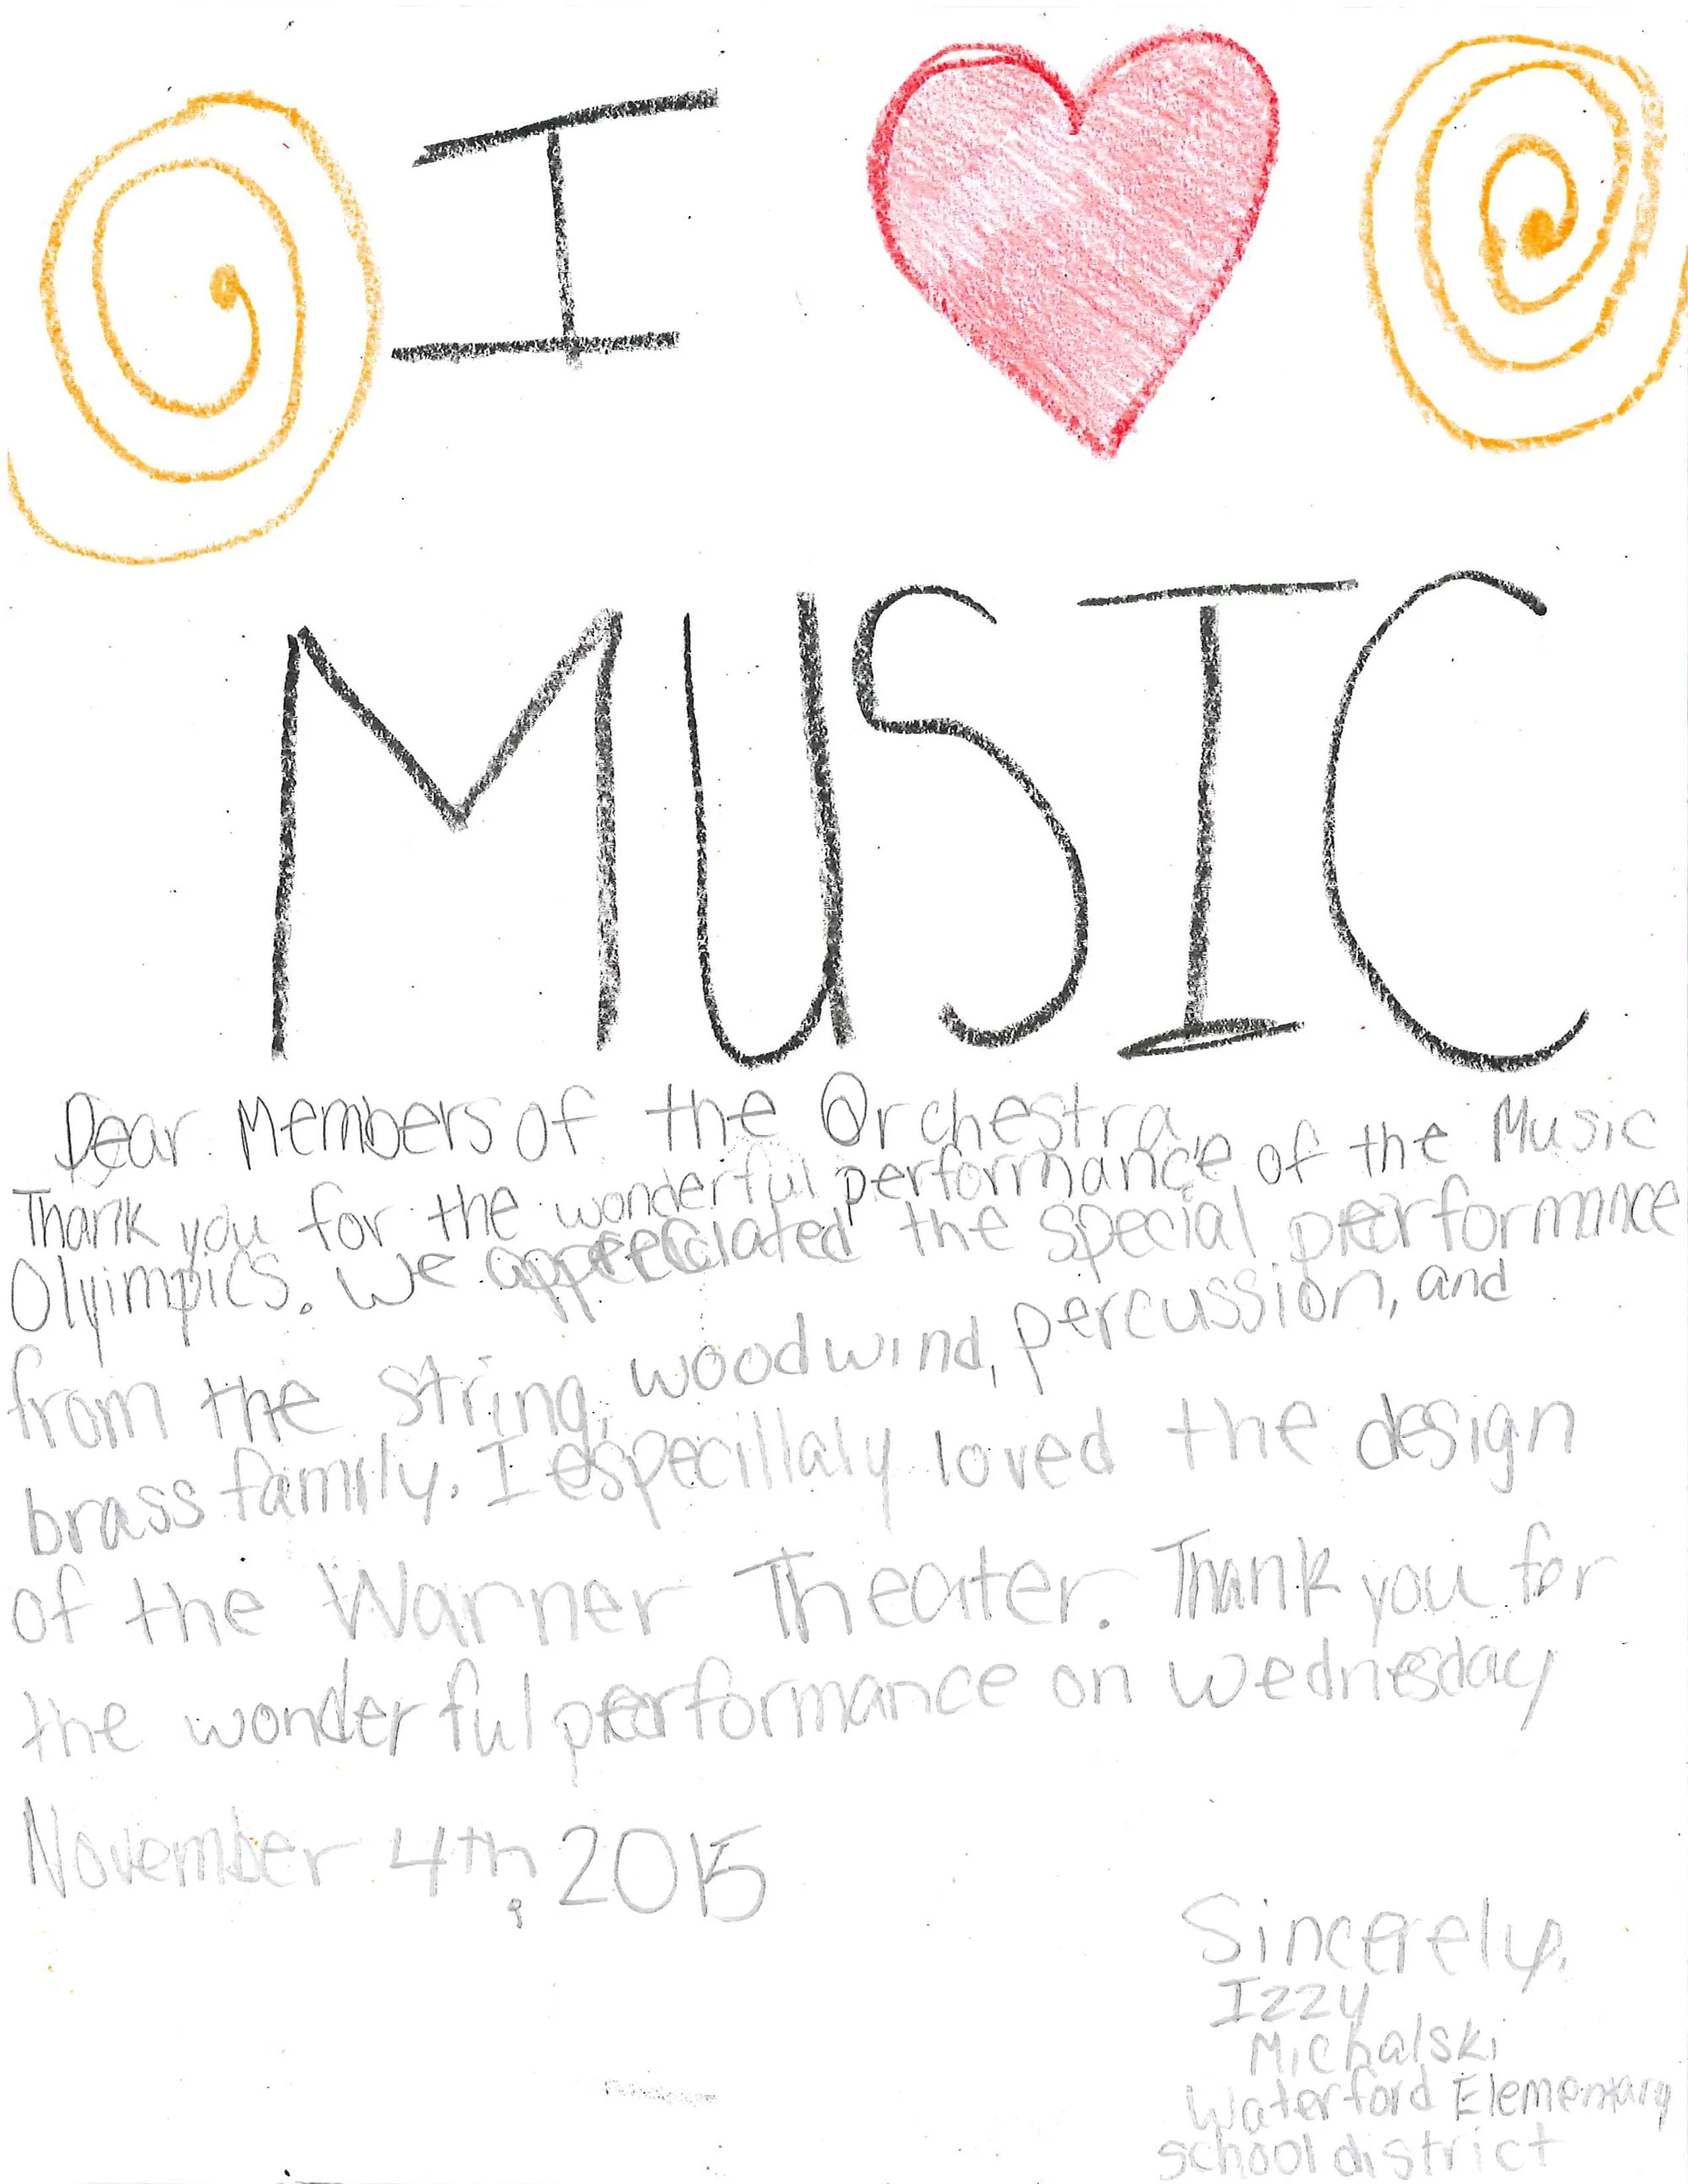 I
MUSIC
Dear Members of the Orchestra
Thank you for the wonderful performance of the Music
Olyimpics. We appreciated the special performance
from the string, woodwind, percussion, and
brass family. I especillaly loved the design
of the Warner Theater. Thank you for
the wonderful performance on Wednesday
November 4th, 2015
Sincerely,
Izzy
Michalski
Waterford Elementary
school district